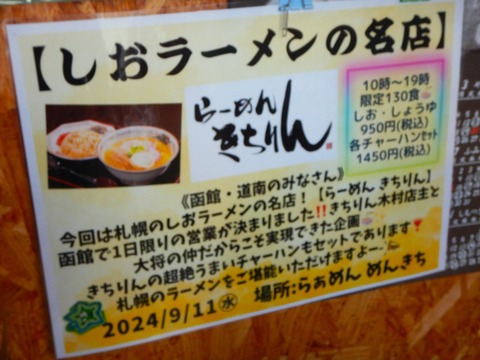 【しおラーメンの名店】
らーめん
きちりん
10時〜19時
限定130食🍥
しお・しょうゆ
950円(税込)
各チャーハンセット
1450円(税込)
《函館・道南のみなさん》
今回は札幌のしおラーメンの名店！【らーめん きちりん】
函館で1日限りの営業が決まりました‼️きちりん木村店主と
大将の仲だからこそ実現できた企画🍥
きちりんの超絶うまいチャーハンもセットであります❗
札幌のラーメンをご堪能いただけますよー🍜
2024/9/11㊌ 場所:らぁめん めんきち